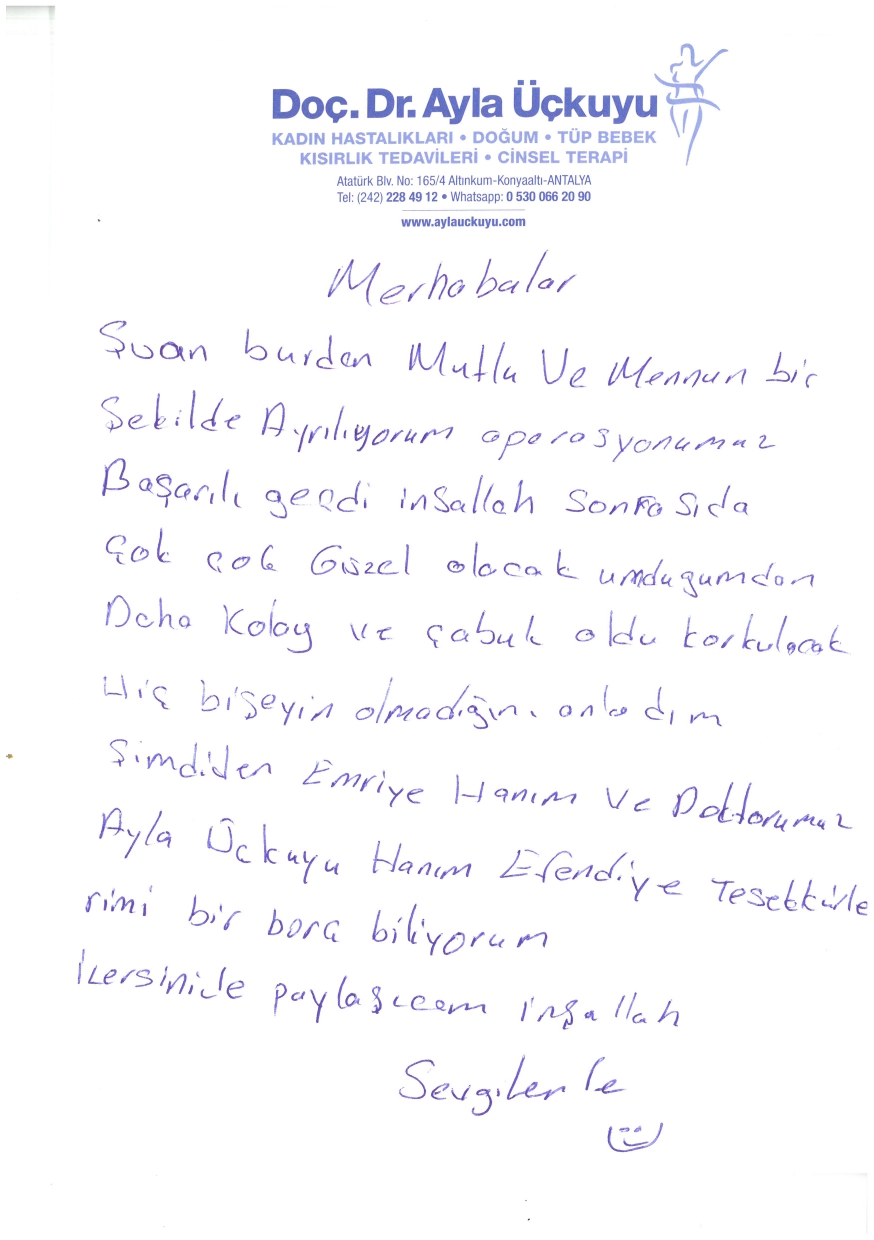 Doç. Dr. Ayla Üçkuyu
KADIN HASTALIKLARI • DOĞUM • TÜP BEBEK
KISIRLIK TEDAVİLERİ • CİNSEL TERAPİ
Atatürk Blv. No: 165/4 Altınkum-Konyaaltı-ANTALYA
Tel: (242) 228 49 12 • Whatsapp: 0 530 066 20 90
www.aylauckuyu.com
Merhabalar
Şuan burdan Mutlu Ve Memnun bir
Şekilde Ayrılıyorum operasyonumuz
Başarılı geçdi inşallah sonrasıda
Çok çok Güzel olacak umduğumdan
Daha Kolay ve çabuk oldu korkulacak
Hiç bişeyin olmadığını anladım
Şimdiden Emriye Hanım Ve Doktorumuz
Ayla Üçkuyu Hanım Efendiye Teşekkürle
rimi bir borç biliyorum
İlersinide paylaşıcam inşallah
Sevgilerle